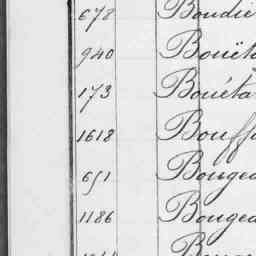 678 Boudie
940 Bouëta
173 Bouéta
1618 Bouffa
651 Bougea
1186 Bougea